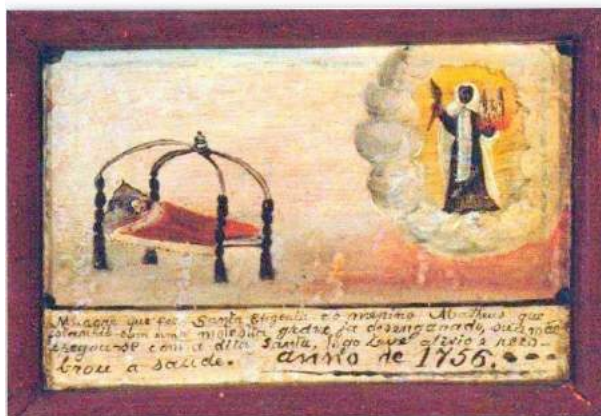 Milagre que fez Santa Efigenia ao menino Matheus que
com uma molestia grave ja desenganado, sua mãe
pegou-se com a dita Santa, logo teve alivio e reco-
brou a saude. anno de 1756.